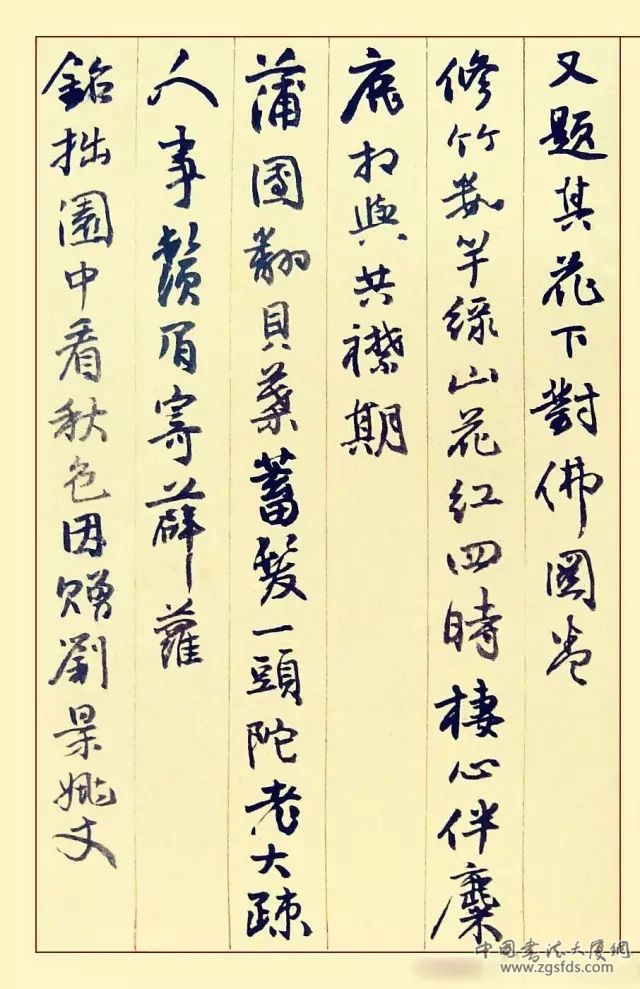 又題其花下對佛圖卷
修竹數竿綠山花紅四時棲心伴麋
鹿相與共襟期
蒲團翻貝葉蓄髮一頭陀老大疎
人事鬚眉寄薜蘿
銘拙園中看秋色因贈劉景姚丈
中国书法大厦网
www.zgsfds.com